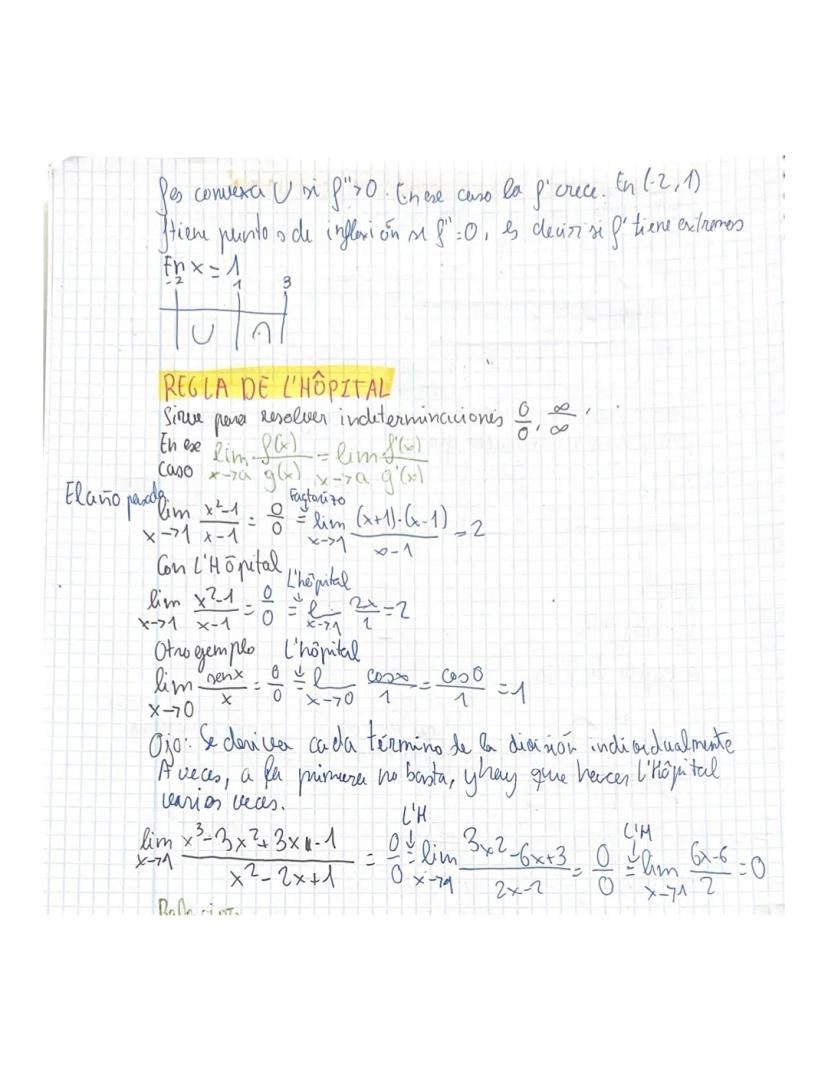 f es convexa ∪ si f''>0. En ese caso la f' crece. En (-2,1)
f tiene puntos de inflexión si f''=0, es decir si f' tiene extremos
En x=1
-2 1 3
∪ ∩
REGLA DE L'HÔPITAL
Sirve para resolver indeterminaciones 0/0, ∞/∞
En ese caso lim x→a f(x)/g(x) = lim x→a f'(x)/g'(x)
El año pasado lim x→1 x²-1/x-1 = 0/0 = Factorizo lim x→1 (x+1)·(x-1)/x-1 = 2
Con L'Hôpital
lim x→1 x²-1/x-1 = 0/0 = L'hôpital ↓ l x→1 2x/1 = 2
Otro ejemplo L'hôpital
lim x→0 senx/x = 0/0 ↓ = l x→0 cosx/1 = cos0/1 = 1
Ojo: Se deriva cada término de la división individualmente
A veces, a la primera no basta, y hay que hacer L'Hôpital
varias veces.
lim x→1 x³-3x²+3x-1/x²-2x+1 = 0/0 L'H ↓ = lim x→1 3x²-6x+3/2x-2 = 0/0 L'H ↓ = lim x→1 6x-6/2 = 0